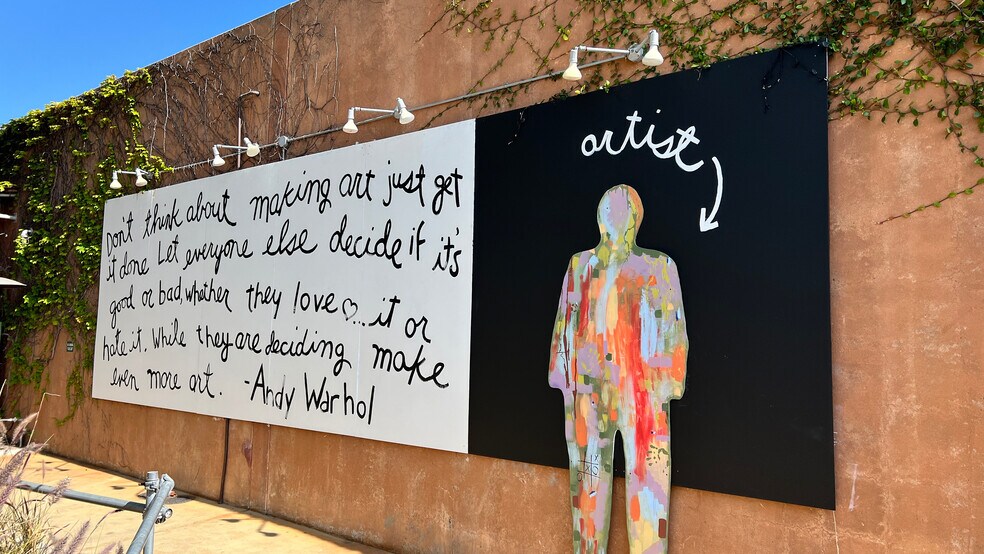 Don't think about making art just get
it done. Let everyone else decide if it's
good or bad, whether they love ♡...it or
hate it. While they are deciding make
even more art. -Andy Warhol
artist